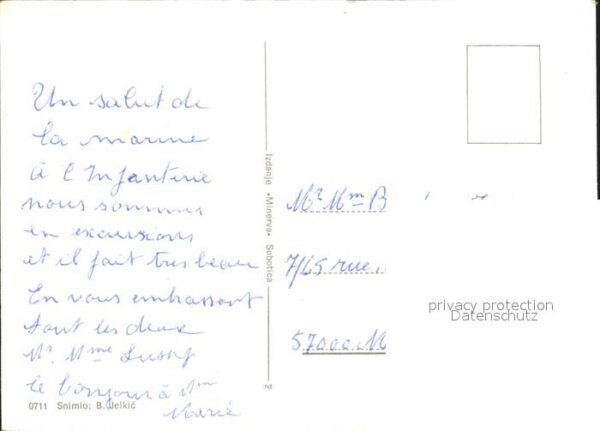 Un salut de
la marine
à l'Infanterie
nous sommes
en excursions
et il fait tres beau
En vous embrassant
tout les deux
Mr. Mme
le bonjour à Mm
Marie
0711 Snimio: B. Jelkić
Izdanje •Minerva• Subotica
Mr Mm B
7/65 rue
57000 M
privacy protection
Datenschutz